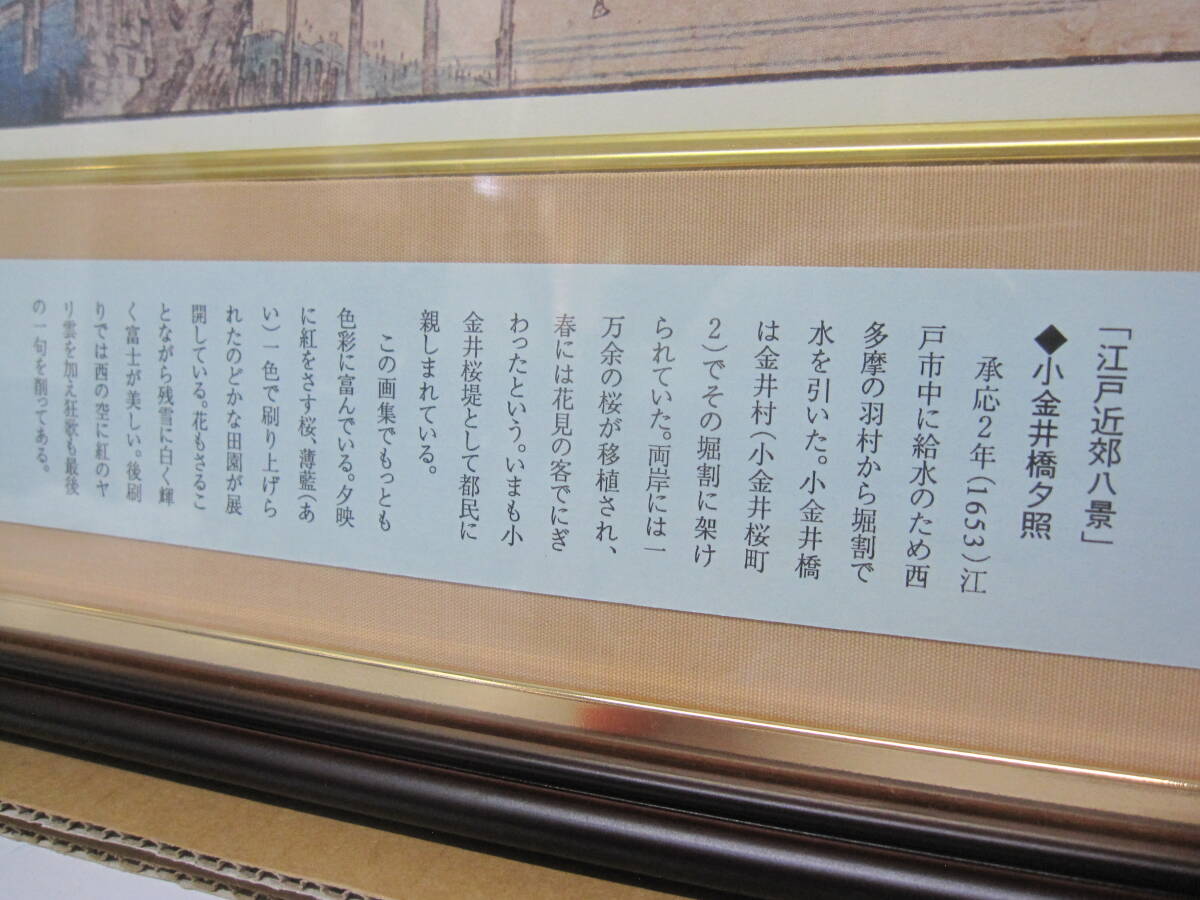 「江戸近郊八景」
◆小金井橋夕照
承応2年(1653)江
戸市中に給水のため西
多摩の羽村から堀割で
水を引いた。小金井橋
は金井村(小金井桜町
2)でその堀割に架け
られていた。両岸には一
万余の桜が移植され、
春には花見の客でにぎ
わったという。いまも小
金井桜堤として都民に
親しまれている。
この画集でもっとも
色彩に富んでいる。夕映
に紅をさす桜、薄藍(あ
い)一色で刷り上げら
れたのどかな田園が展
開している。花もさるこ
とながら残雪に白く輝
く富士が美しい。後刷
りでは西の空に紅のヤ
リ雲を加え狂歌も最後
の一句を削ってある。